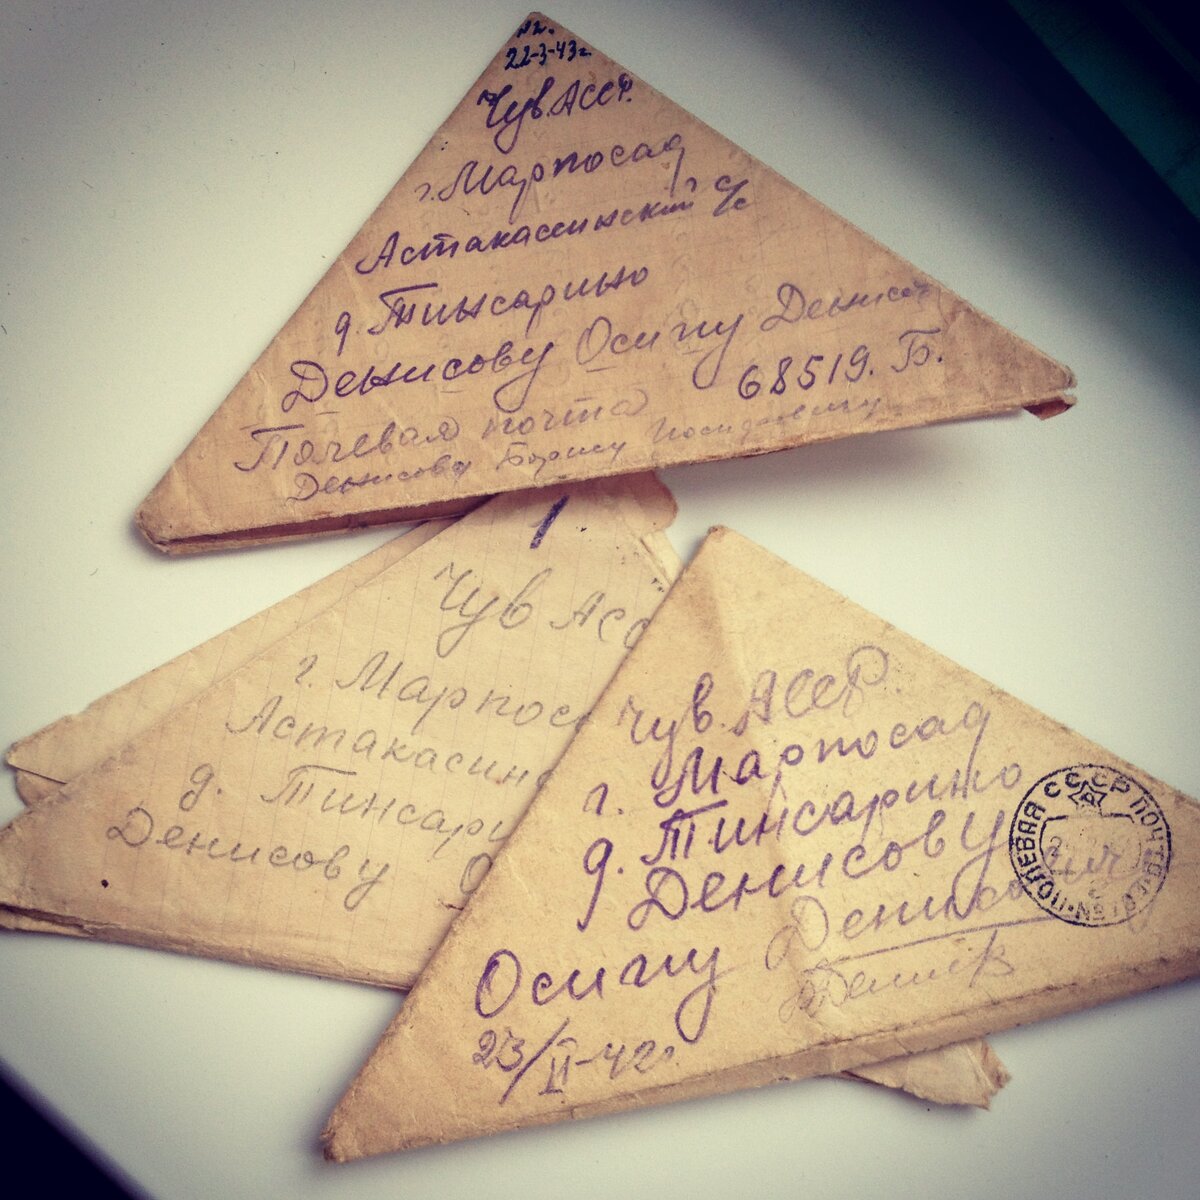 N2.
22-3-43г
Чув. АССР.
г. Марпосад
Астакассинский с/с
д. Тинсарино
Денисову Осипу Денисов
Полевая почта 68519. Б.
Денисову Борису
1
Чув АСС
г. Марпоса
Астакасинс
д. Тинсари
Денисову О
Чув. АССР.
г. Марпосад
д. Тинсарино
Денисову
Осипу Денисович
23/II-42г.
ПОЛЕВАЯ СССР ПОЧТА